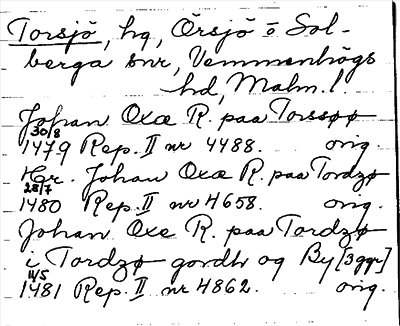 Torsjö, hg, Örsjö o Sol-
berga snr, Vemmenhögs
hd, Malm. l.
Johan Oxe R. paa Torssøø
30/8
1479 Rep. II nr 4488. orig.
Hr. Johan Oxe R. paa Tordzø
28/7
1480 Rep. II nr 4658. orig.
Johan Oxe R. paa Tordzø
i Tordzø gordh og By [3 ggr]
11/5
1481 Rep. II nr 4862. orig.